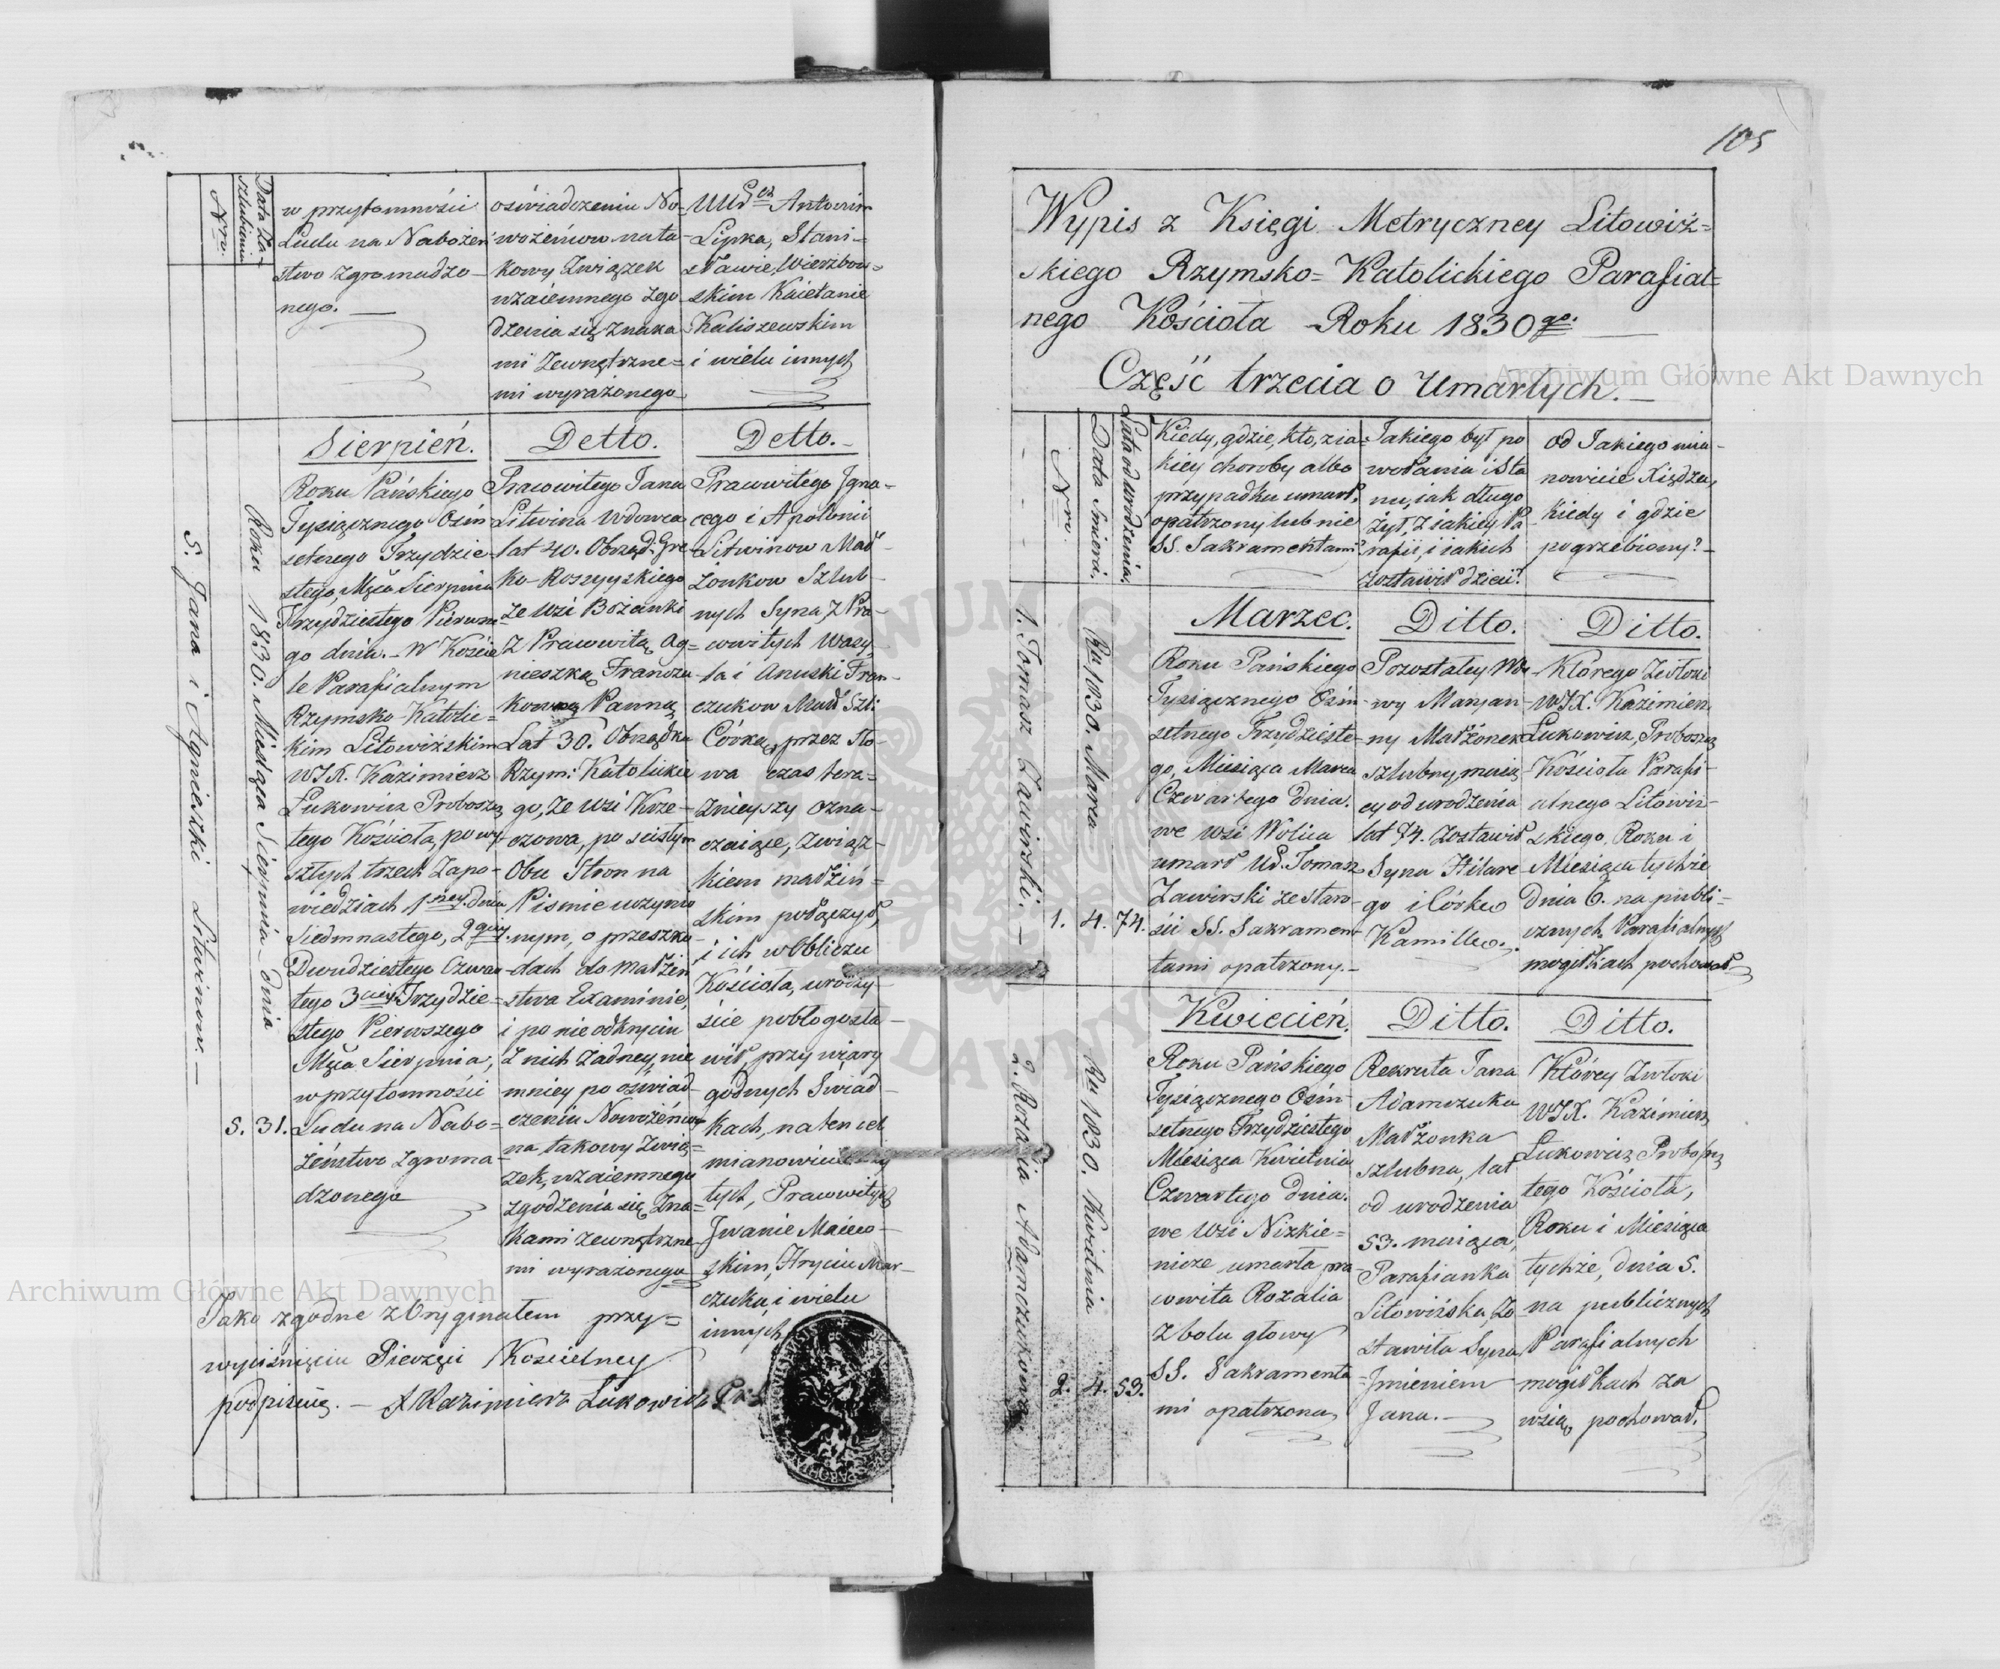 Nro.
Data Za-
szlubienia
w przytomności
Ludu na Nabożeń
stwo zgromadzo-
nego.
oświadczeniu No-
wożeńcow na ta-
kowy Związek
wzaiemnego zgo
dzenia się znaka
mi Zewnętrzne=
mi wyrażonego
Antonim
Lipka, Stani=
sławie Wierzbow=
skim Kaietanie
Kaliszewskim
i wielu innych
5. Jana i Agnieszki Litwinow.-
Roku 1830. Miesiąca Sierpnia dnia
5. 31.
Sierpień.
Roku Pańskiego
Tysiącznego Ośm
setnego Trzydzie-
stego, Mca Sierpnia
Trzydziestego Pierwsze
go dnia.- W Koście
le Parafialnym
Rzymsko-Katolic=
kim Litowiżskim
WJX. Kazimierz
Łukowicz Proboszcz
tego Kościoła, po wy-
szłych trzech Zapo-
wiedziach 1szey dnia
Siedmnastego, 2giey
Dwudziestego Czwar
tego 3ciey Trzydzie=
stego Pierwszego
Mca Sierpnia,
w przytomności
Ludu na Nabo=
żeństwo zgroma-
dzonego
Detto.
Pracowitego Jana
Litwina Wdowca
lat 40. Obrząd: Gre-
ko-Rossyyskiego
ze Wsi Bożanki
z Pracowitą Ag=
nieszką Franczu-
kowną Panną
Lat 30. Obrządku
Rzym: Katolickie
go, ze Wsi Krze-
czowa, po ścisłym
Obu Stron na
Piśmie uczynio
nym, o przeszko-
dach do małżeń
stwa Examinie,
i po nie odkryciu
z nich żadney, nie
mniey po oświad-
czeniu Nowożeńcow
na takowy Zwią-
zek, wzaiemnego
zgodzenia się Zna=
kami zewnętrzne-
mi wyrażonego
Detto.-
Pracowitego Igna-
cego i Apolonii
Litwinow Mał-
żonkow Szlub-
nych Syna, z Pra-
cowitych Wasy-
la i Anuski Fran-
czukow Małż Szl:
Corką, przez Sło-
wa czas tera=
znieyszy ozna-
czaiące, związ-
kiem małżeń=
skim połączył,
i ich w Obliczu
Kościoła, uroczy-
ście pobłogosła-
wił, przy wiary
godnych Świad-
kach, na ten cel
mianowicie uży
tych, Pracowitych
Iwanie Maiew-
skim, Hryciu Mar-
czuku, i wielu
innych
Jako zgodne z Oryginałem przy=
wyciśnięciu Pieczęci Kościelney
podpisuię.- X Kazimierz Łukowicz
105
Wypis z Księgi Metryczney Litowiż=
skiego Rzymsko=Katolickiego Parafial=
nego Kościoła Roku 1830go.
Część trzecia o Umarłych.-
Nro.
Data Śmierci.
Lata od urodzenia.
Kiedy, gdzie, kto, z ia-
kiey choroby albo
przypadku umarł,
opatrzony lub nie
SS. Sakramentami?
Jakiego był po
wołania i Sta
nu, iak długo
żył, z iakiey Pa
rafii, i iakich
zostawił dzieci?
Od Jakiego mia-
nowicie Xiędza,
kiedy i gdzie
pogrzebiony?-
1. Tomasz Zawirski.-
Ru 1830. Marca
1. 4. 74.
Marzec.
Roku Pańskiego
Tysiącznego Ośm-
setnego Trzydzieste-
go, Miesiąca Marca
Czwartego Dnia.
we Wsi Wolica
umarł Ur. Tomasz
Zawirski ze staro-
ści SS. Sakramen-
tami opatrzony.-
Ditto.
Pozostałey Wdo
wy Maryan-
ny Małżonek
szlubny, maią-
cy od urodzenia
lat 74. zostawił
Syna Hilare
go i Corkę
Kamillę.
Ditto.
Którego Zwłoki
WJX. Kazimierz
Łukowicz, Proboszcz
Kościoła Parafi-
alnego Litowiż-
skiego, Roku i
Miesiąca tychże
Dnia 6. na publi-
cznych Parafialnych
mogiłkach pochował
2. Rozalia Adamczukowa
Ru 1830. Kwietnia
2. 4. 53.
Kwiecień.
Roku Pańskiego
Tysiącznego Ośm-
setnego Trzydziestego
Miesiąca Kwietnia
Czwartego Dnia.
we Wsi Nizkie=
nicze umarła pra-
cowita Rozalia
z bolu głowy
SS. Sakramenta
mi opatrzona
Ditto.
Rekruta Jana
Adamczuka
Małżonka
szlubna, lat
od urodzenia
53. maiąca,
Parafianka
Litowiżska, Zo
stawiła Syna
Imieniem
Jana.-
Ditto.
Którey Zwłoki
WJX. Kazimierz
Łukowicz Proboszcz
tego Kościoła,
Roku i Miesiąca
tychże, dnia 5.
na publicznych
Parafialnych
mogiłkach za
wsią pochował.
Archiwum Główne Akt Dawnych
Archiwum Główne Akt Dawnych